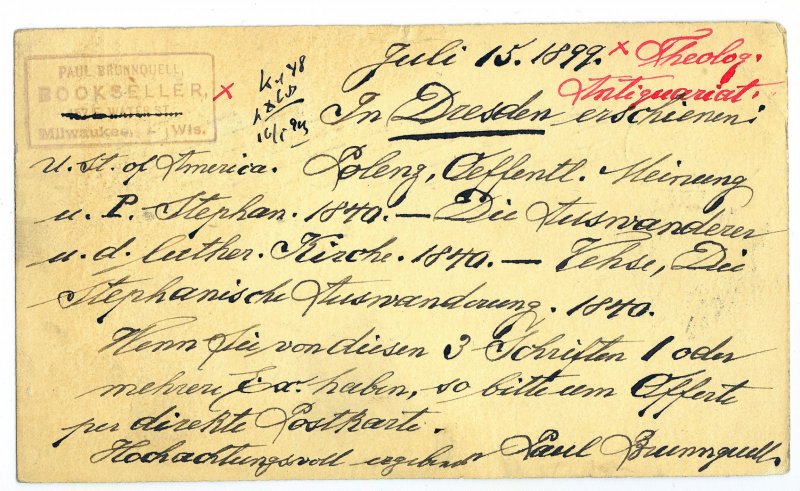 PAUL BRUNNQUELL,
BOOKSELLER,
E. WATER ST.
Milwaukee, - Wis.
x
Juli 15. 1899. x Theolog.
Antiquariat.
In Dresden erschienen:
U. St. of America. Polenz, Oeffentl. Meinung
u. P. Stephan. 1840. — Die Auswanderer
u. d. luther. Kirche. 1840. — Vehse, Die
Stephanische Auswanderung. 1840.
Wenn Sie von diesen 3 Schriften 1 oder
mehrere Ex. haben, so bitte um Offerte
per direkte Postkarte.
Hochachtungsvoll ergebenst Paul Brunnquell.